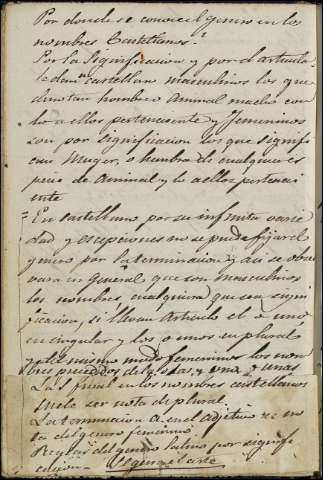 Por donde se conoce el genero en los
nombres Castellanos?
Por la significacion y por el articulo
castellano masculinos los que
denotan hombre Animal macho con
lo a ellos perteneciente y femeninos
son por significacion los que signifi
can Muger, o hembra de cualquier es
pecie de Animal y lo a ellos pertenesi
ente
En castellano por su infinita varie
dad y escepciones no se puede fijar el
genero por la terminacion y asi se obser
vara en General que son masculinos
los nombres cualquiera que sea su signi
ficacion, si llevan Articulo el o uno
en singular y los o unos en plural
y del mismo modo femeninos los nom
bres precedidos de la, las, y una, y unas
La s final en los nombres castellanos
suele ser nota de plural.
La terminacion a. en el adjetivo es no
ta del genero femenino
Reglas del genero latino por signifi
cacion